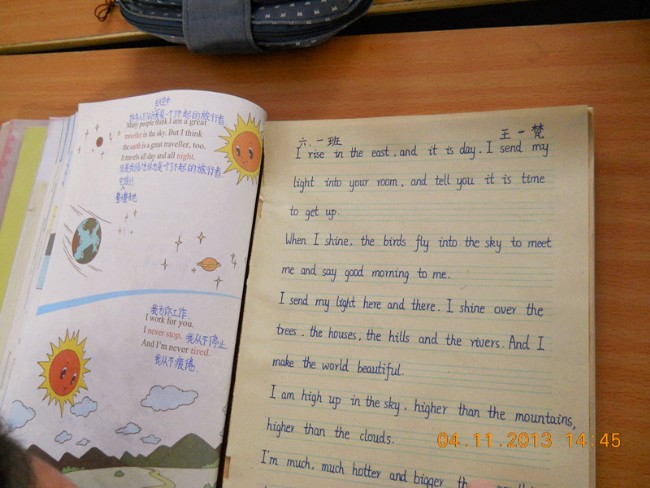 Many people think I am a great
traveller in the sky. But I think
the earth is a great traveller, too.
It travels all day and all night.
整天整夜地
我为你工作
I work for you.
I never stop. 我从不停止
And I'm never tired.
我从不疲倦.
六.一班 王一梵
I rise in the east, and it is day. I send my
light into your room, and tell you it is time
to get up.
When I shine, the birds fly into the sky to meet
me and say good morning to me.
I send my light here and there. I shine over the
trees, the houses, the hills and the rivers. And I
make the world beautiful.
I am high up in the sky, higher than the mountains,
higher than the clouds.
I'm much, much hotter and bigger
04.11.2013 14:45